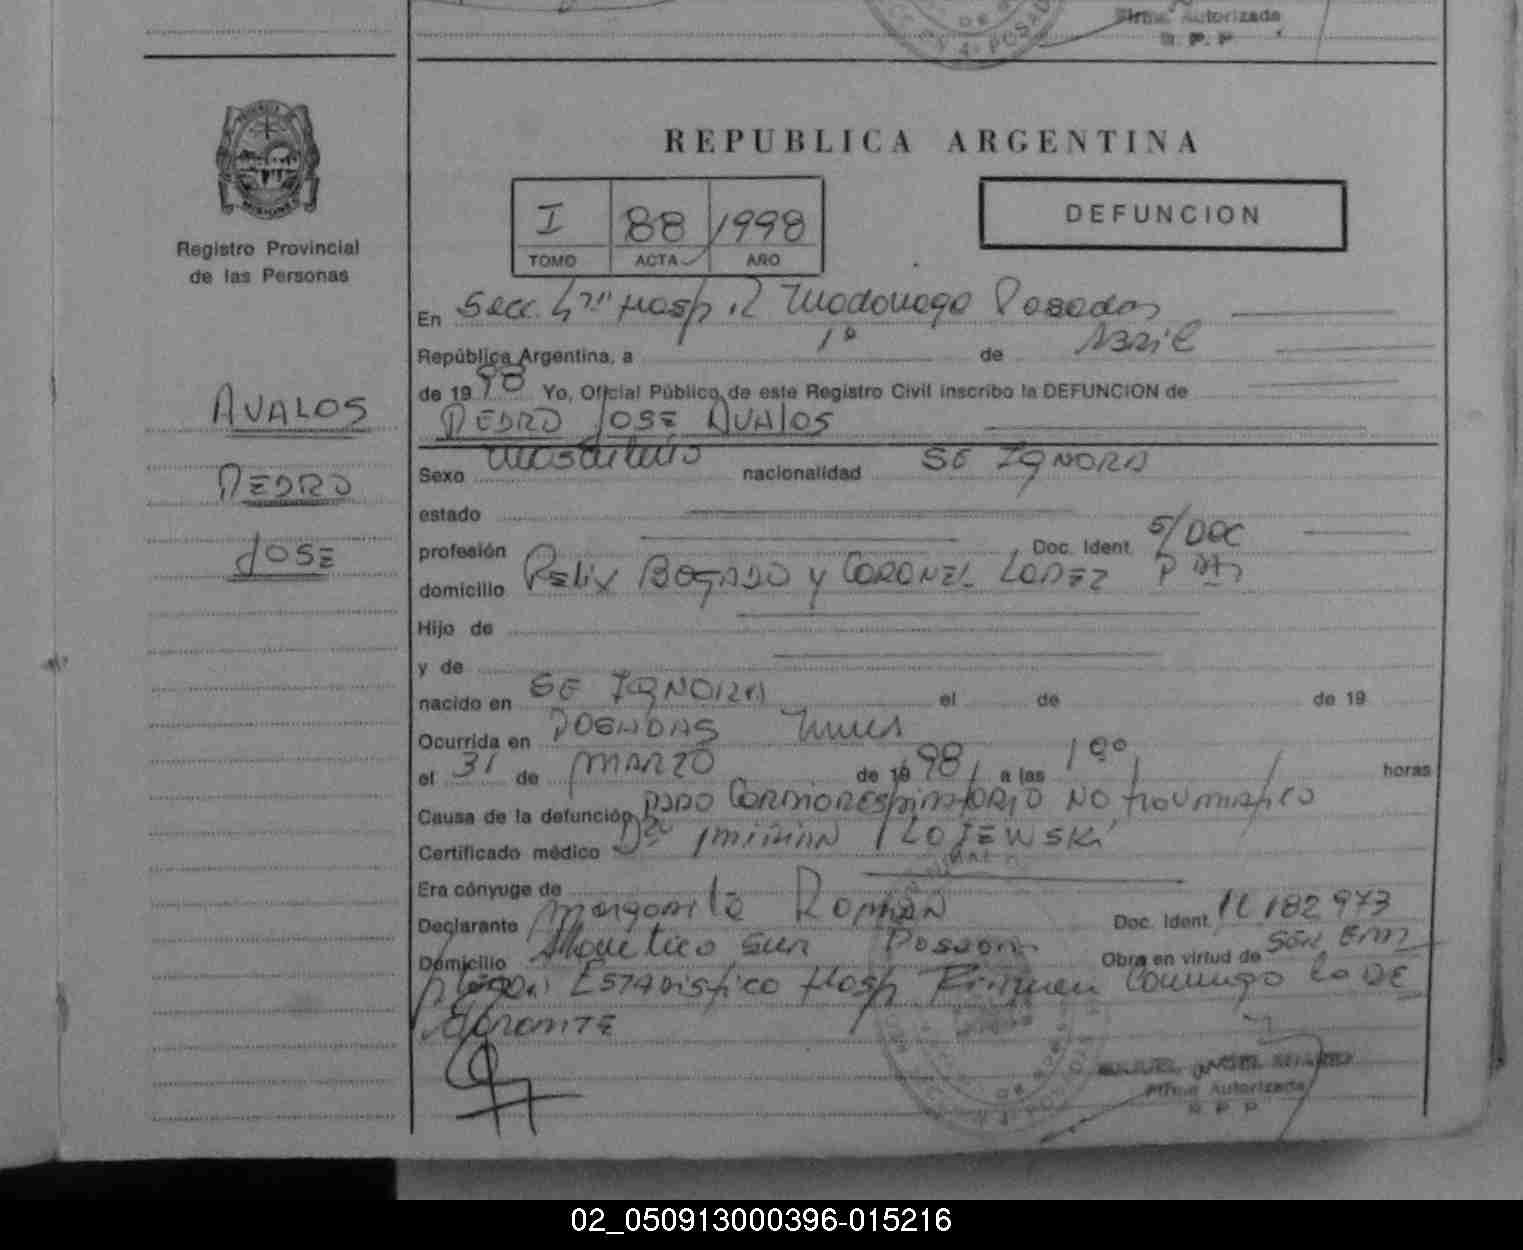 Firma Autorizada
R. P. P.
Registro Provincial
de las Personas
AVALOS
PEDRO
JOSE
REPUBLICA ARGENTINA
I 88 1998
TOMO ACTA AÑO
DEFUNCION
En Secc. 4ta Hosp. R Madariaga Posadas
República Argentina, a 1º de Abril
de 19 98 Yo, Oficial Público de este Registro Civil inscribo la DEFUNCION de
PEDRO JOSE AVALOS
Sexo Masculino nacionalidad SE IGNORA
estado
profesión Doc. Ident. S/DOC
domicilio Felix BOGADO y CORONEL LOPEZ
Hijo de
y de
nacido en SE IGNORA el de de 19
Ocurrida en POSADAS
el 31 de MARZO de 19 98 a las 1 00 horas
Causa de la defunción PARO CARDIORESPIRATORIO NO traumatico
Certificado médico
Era cónyuge de
Declarante Margarita ROMAN Doc. Ident. 11 182 973
Domicilio Sur Posadas Obra en virtud de SER EM
ESTADISTICO Hosp
Firma Autorizada
R. P. P.
02_050913000396-015216